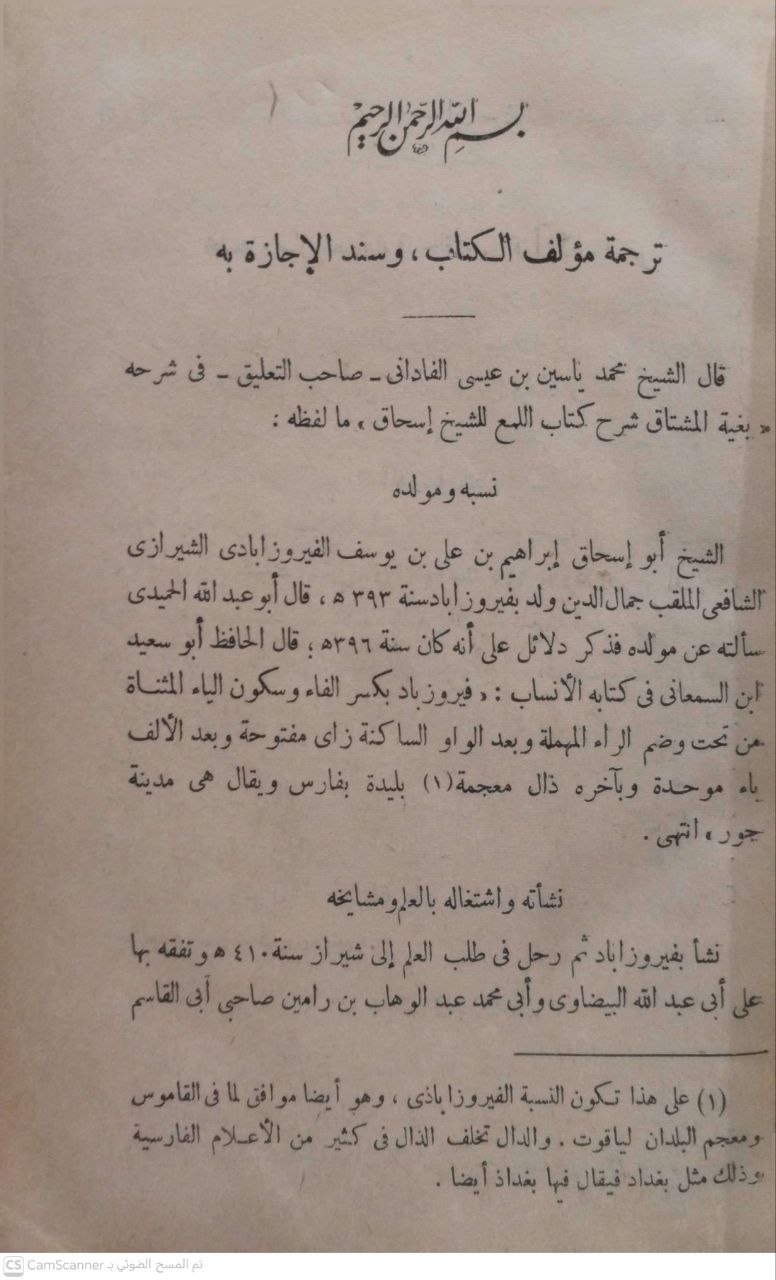 بسم الله الرحمن الرحيم
ترجمة مؤلف الكتاب، وسند الإجازة به
قال الشيخ محمد ياسين بن عيسى الفادانى ـ صاحب التعليق ـ فى شرحه
« بغية المشتاق شرح كتاب اللمع للشيخ إسحاق » ما لفظه :
نسبه ومولده
الشيخ أبو إسحاق إبراهيم بن على بن يوسف الفيروزابادى الشيرازى
الشافعى الملقب جمال الدين ولد بفيروزاباد سنة ٣٩٣ ه ، قال أبو عبد الله الحميدى
سألته عن مولده فذكر دلائل على أنه كان سنة ٣٩٦ه ؛ قال الحافظ أبو سعيد
ابن السمعانى فى كتابه الأنساب : « فيروزباد بكسر الفاء وسكون الياء المثناة
من تحت وضم الراء المهملة وبعد الواو الساكنة زاى مفتوحة وبعد الألف
باء موحدة وبآخره ذال معجمة(١) بليدة بفارس ويقال هى مدينة
جور » انتهى .
نشأته واشتغاله بالعلم ومشايخه
نشأ بفيروزاباد ثم رحل فى طلب العلم إلى شيراز سنة ٤١٠ ه وتفقه بها
على أبى عبد الله البيضاوى وأبى محمد عبد الوهاب بن رامين صاحبى أبى القاسم
(١) على هذا تكون النسبة الفيروزاباذى ، وهو أيضا موافق لما فى القاموس
ومعجم البلدان لياقوت . والدال تخلف الذال فى كثير من الأعلام الفارسية
وذلك مثل بغداد فيقال فيها بغداذ أيضا .
CS CamScanner تم المسح الضوئي بـ